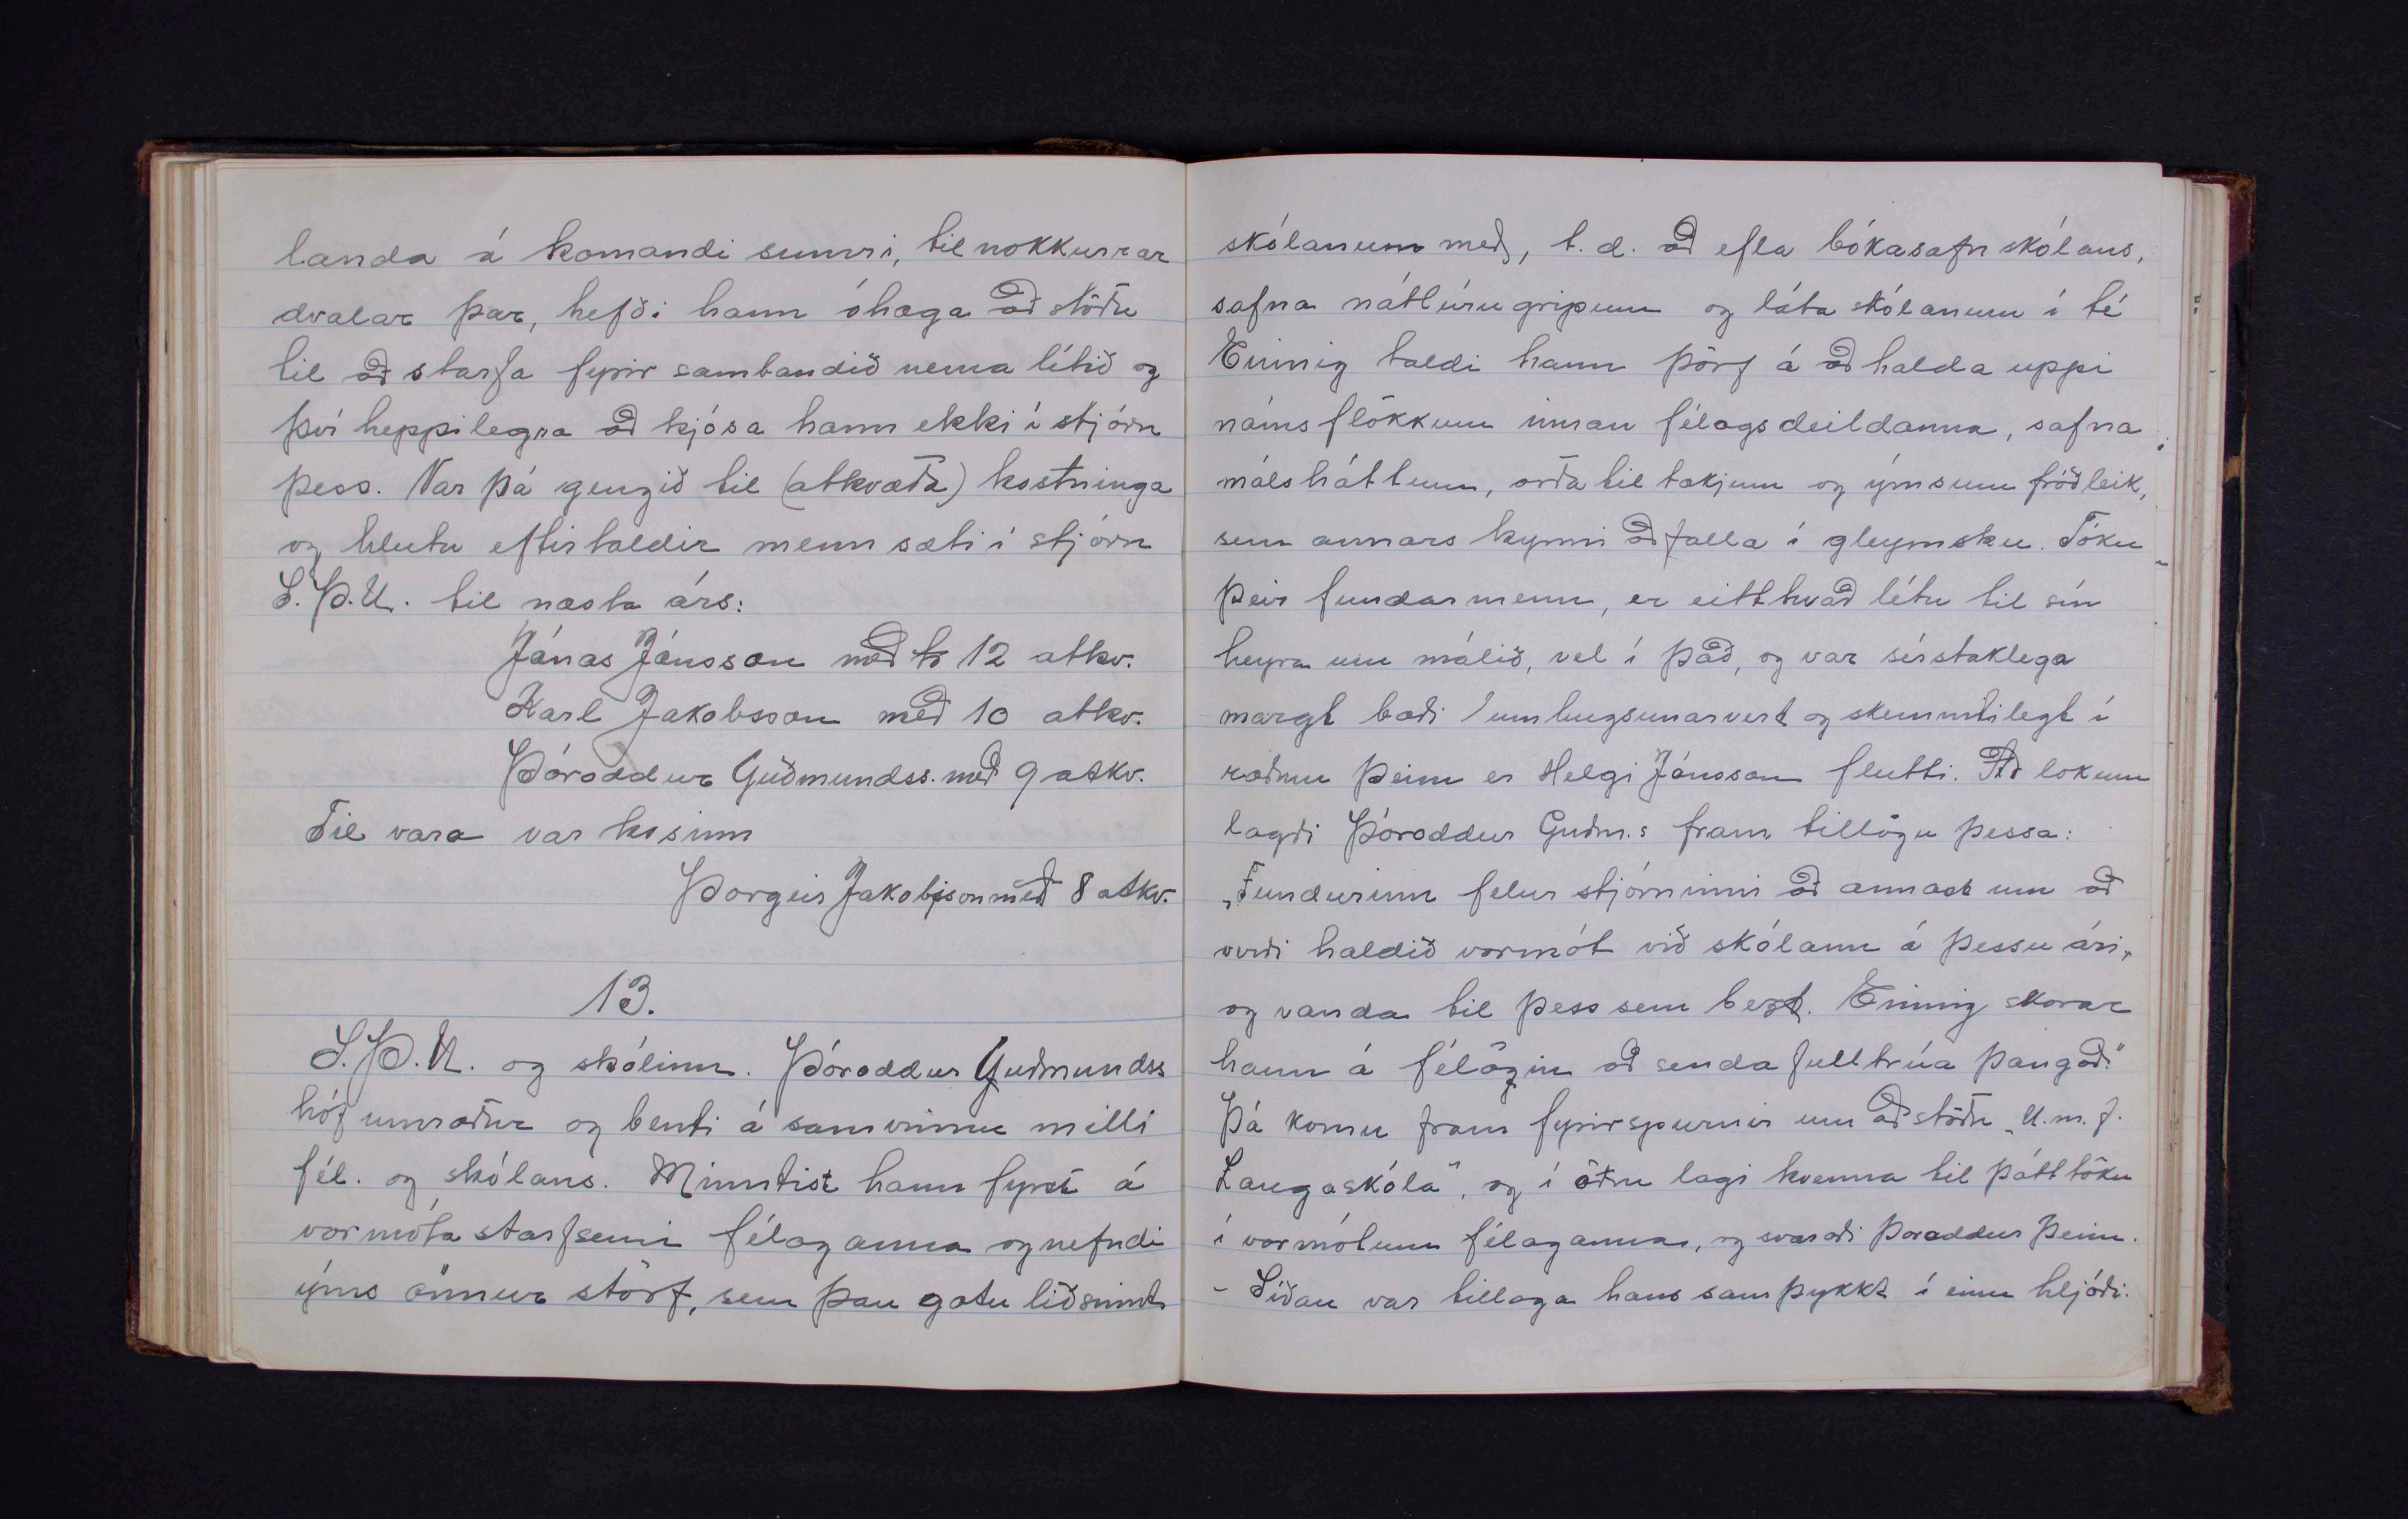 landa á komandi sumri, til nokkurrar
dvalar þar, hefði hann óhæga aðstöðu
til að starfa fyrir sambandið nema lítið og
því heppilegra að kjósa hann ekki í stjórn
þess. Var þá gengið til (atkvæða) kostninga
og hlutu eftirtaldir menn sæti í stjórn
S.Þ.U. til næsta árs:
Jónas Jónsson með 12 atkv.
Karl Jakobsson með 10 atkv.
Þóroddur Guðmundss. með 9 atkv.
Til vara var kosinn
Þorgeir Jakobsson með 8 atkv.
13.
S.Þ.U. og skólinn. Þóroddur Guðmundss
hóf umræður og benti á samvinnu milli
fél. og skólans. Minntist hann fyrst á
vormóta starfsemi félaganna og nefndi
ýms önnur störf, sem þau gætu liðsinnt
skólanum með, t.d. að efla bókasafn skólans,
safna náttúrugripum og láta skólanum í té
Einnig taldi hann þörf á að halda uppi
námsflokkum innan félagsdeildanna, safna
málsháttum, orðatiltækjum og ýmsum fróðleik,
sem annars kynni að falla í gleymsku. Tóku
þeir fundarmenn, er eitthvað létu til sín
heyra um málið, vel í það, og var sérstaklega
margt bæði umhugsunarvert og skemmtilegt í
ræðum þeim er Helgi Jónsson flutti. Að lokum
lagði Þóroddur Guðm.s fram tillögu þessa:
„Fundurinn felur stjórninni að annast um að
verði haldið vormót við skólann á þessu ári,
og vanda til þess sem bezt. Einnig skorar
hann á félögin að senda fulltrúa þangað."
Þá komu fram fyrirspurnir um aðstöðu „U.m.f.
Laugaskóla", og í öðru lagi kvenna til þátttöku
í vormótum félaganna, og svaraði Þoroddur þeim.
- Síðan var tillaga hans samþykkt í einu hljóði.